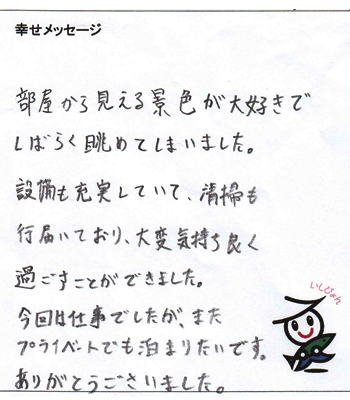 幸せメッセージ
部屋から見える景色が大好きで
しばらく眺めてしまいました。
設備も充実していて、清掃も
行届いており、大変気持ち良く
過ごすことができました。
今回は仕事でしたが、また
プライベートでも泊まりたいです。
ありがとうございました。
いしぴょん